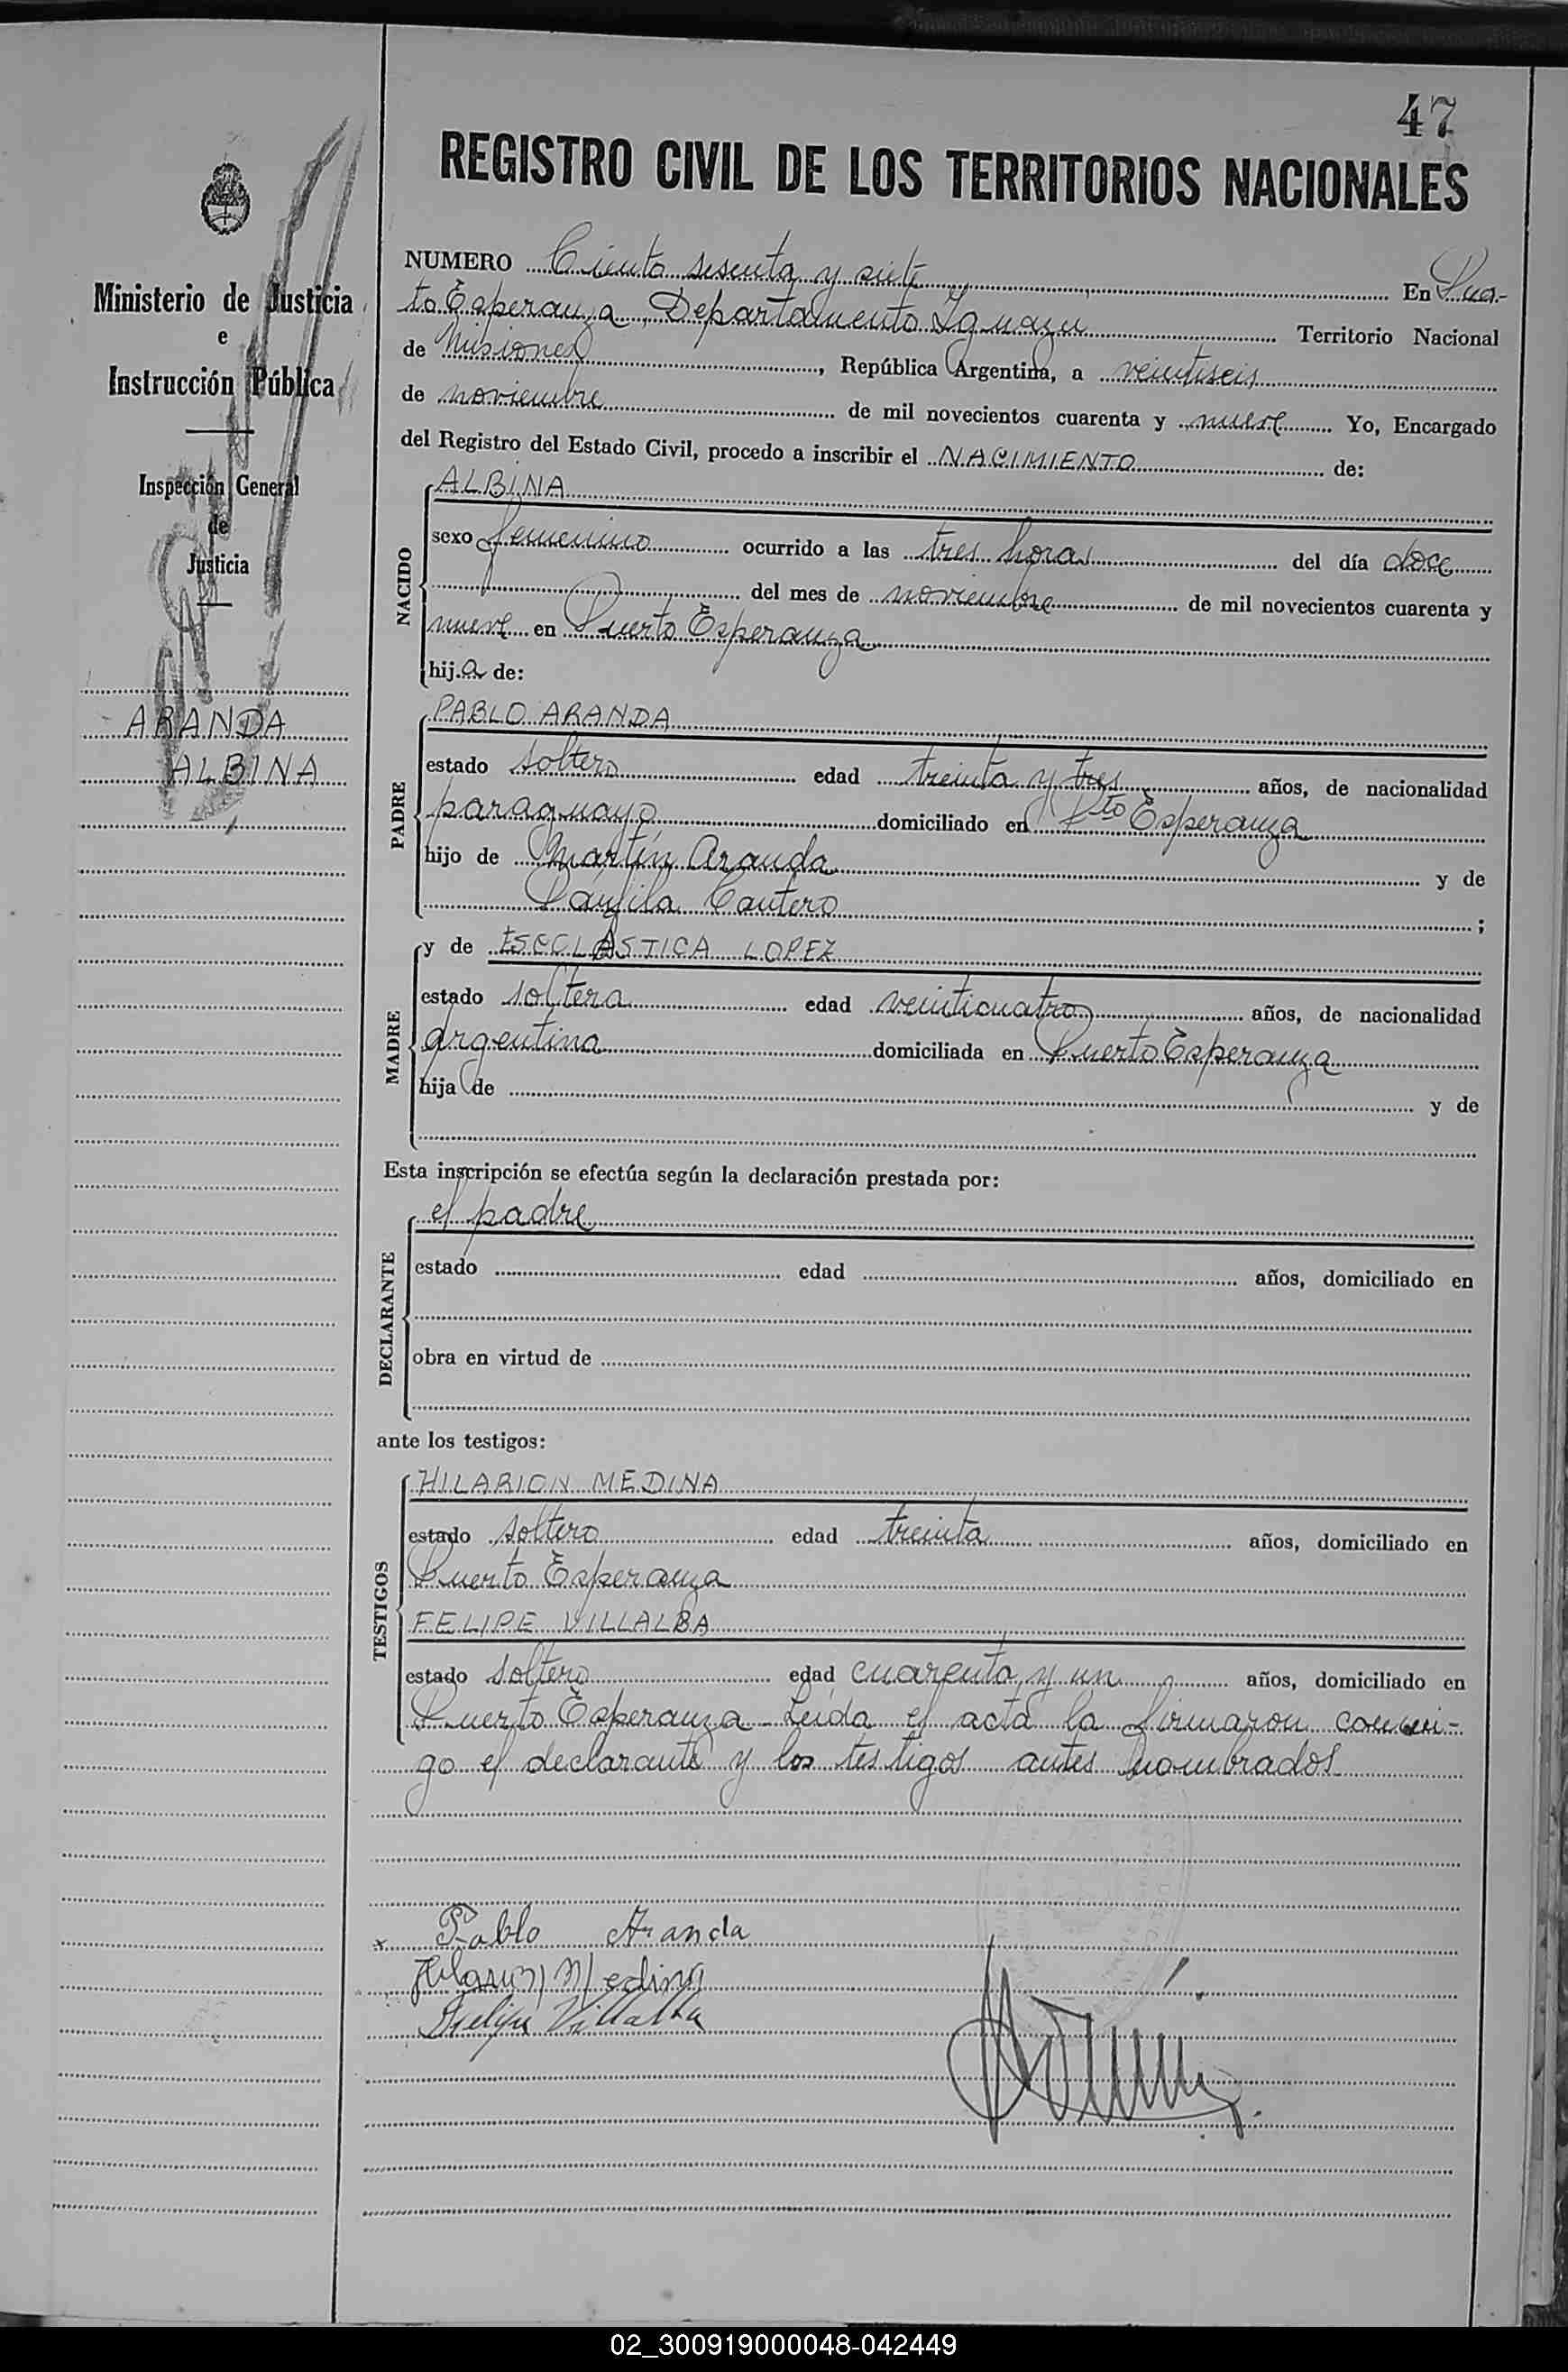 47
REGISTRO CIVIL DE LOS TERRITORIOS NACIONALES
Ministerio de Justicia
e
Instrucción Pública
Inspección General
de
Justicia
ARANDA
ALBINA
NUMERO Ciento sesenta y siete En Puer-
to Esperanza, Departamento Iguazu Territorio Nacional
de Misiones, República Argentina, a veintiseis
de noviembre de mil novecientos cuarenta y nueve Yo, Encargado
del Registro del Estado Civil, procedo a inscribir el NACIMIENTO de:
NACIDO
ALBINA
sexo femenino ocurrido a las tres horas del día doce
del mes de noviembre de mil novecientos cuarenta y
nueve en Puerto Esperanza
hija de:
PADRE
PABLO ARANDA
estado soltero edad treinta y tres años, de nacionalidad
paraguayo domiciliado en Pto Esperanza
hijo de Martín Aranda y de
Cantero ;
MADRE
y de ESCOLASTICA LOPEZ
estado soltera edad veinticuatro años, de nacionalidad
argentina domiciliada en Puerto Esperanza
hija de y de
Esta inscripción se efectúa según la declaración prestada por:
DECLARANTE
el padre
estado edad años, domiciliado en
obra en virtud de
ante los testigos:
TESTIGOS
HILARION MEDINA
estado soltero edad treinta años, domiciliado en
Puerto Esperanza
FELIPE VILLALBA
estado soltero edad cuarenta y un años, domiciliado en
Puerto Esperanza - Leída el acta la firmaron conmi-
go el declarante y los testigos antes nombrados
x Pablo Aranda
Hilarion Medina
Felipe Villalba
02_300919000048-042449